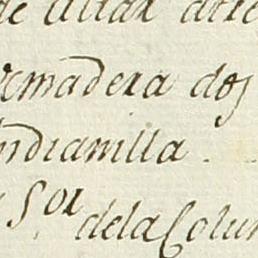 de altar
madera dos
indianilla
Sor de la Colu